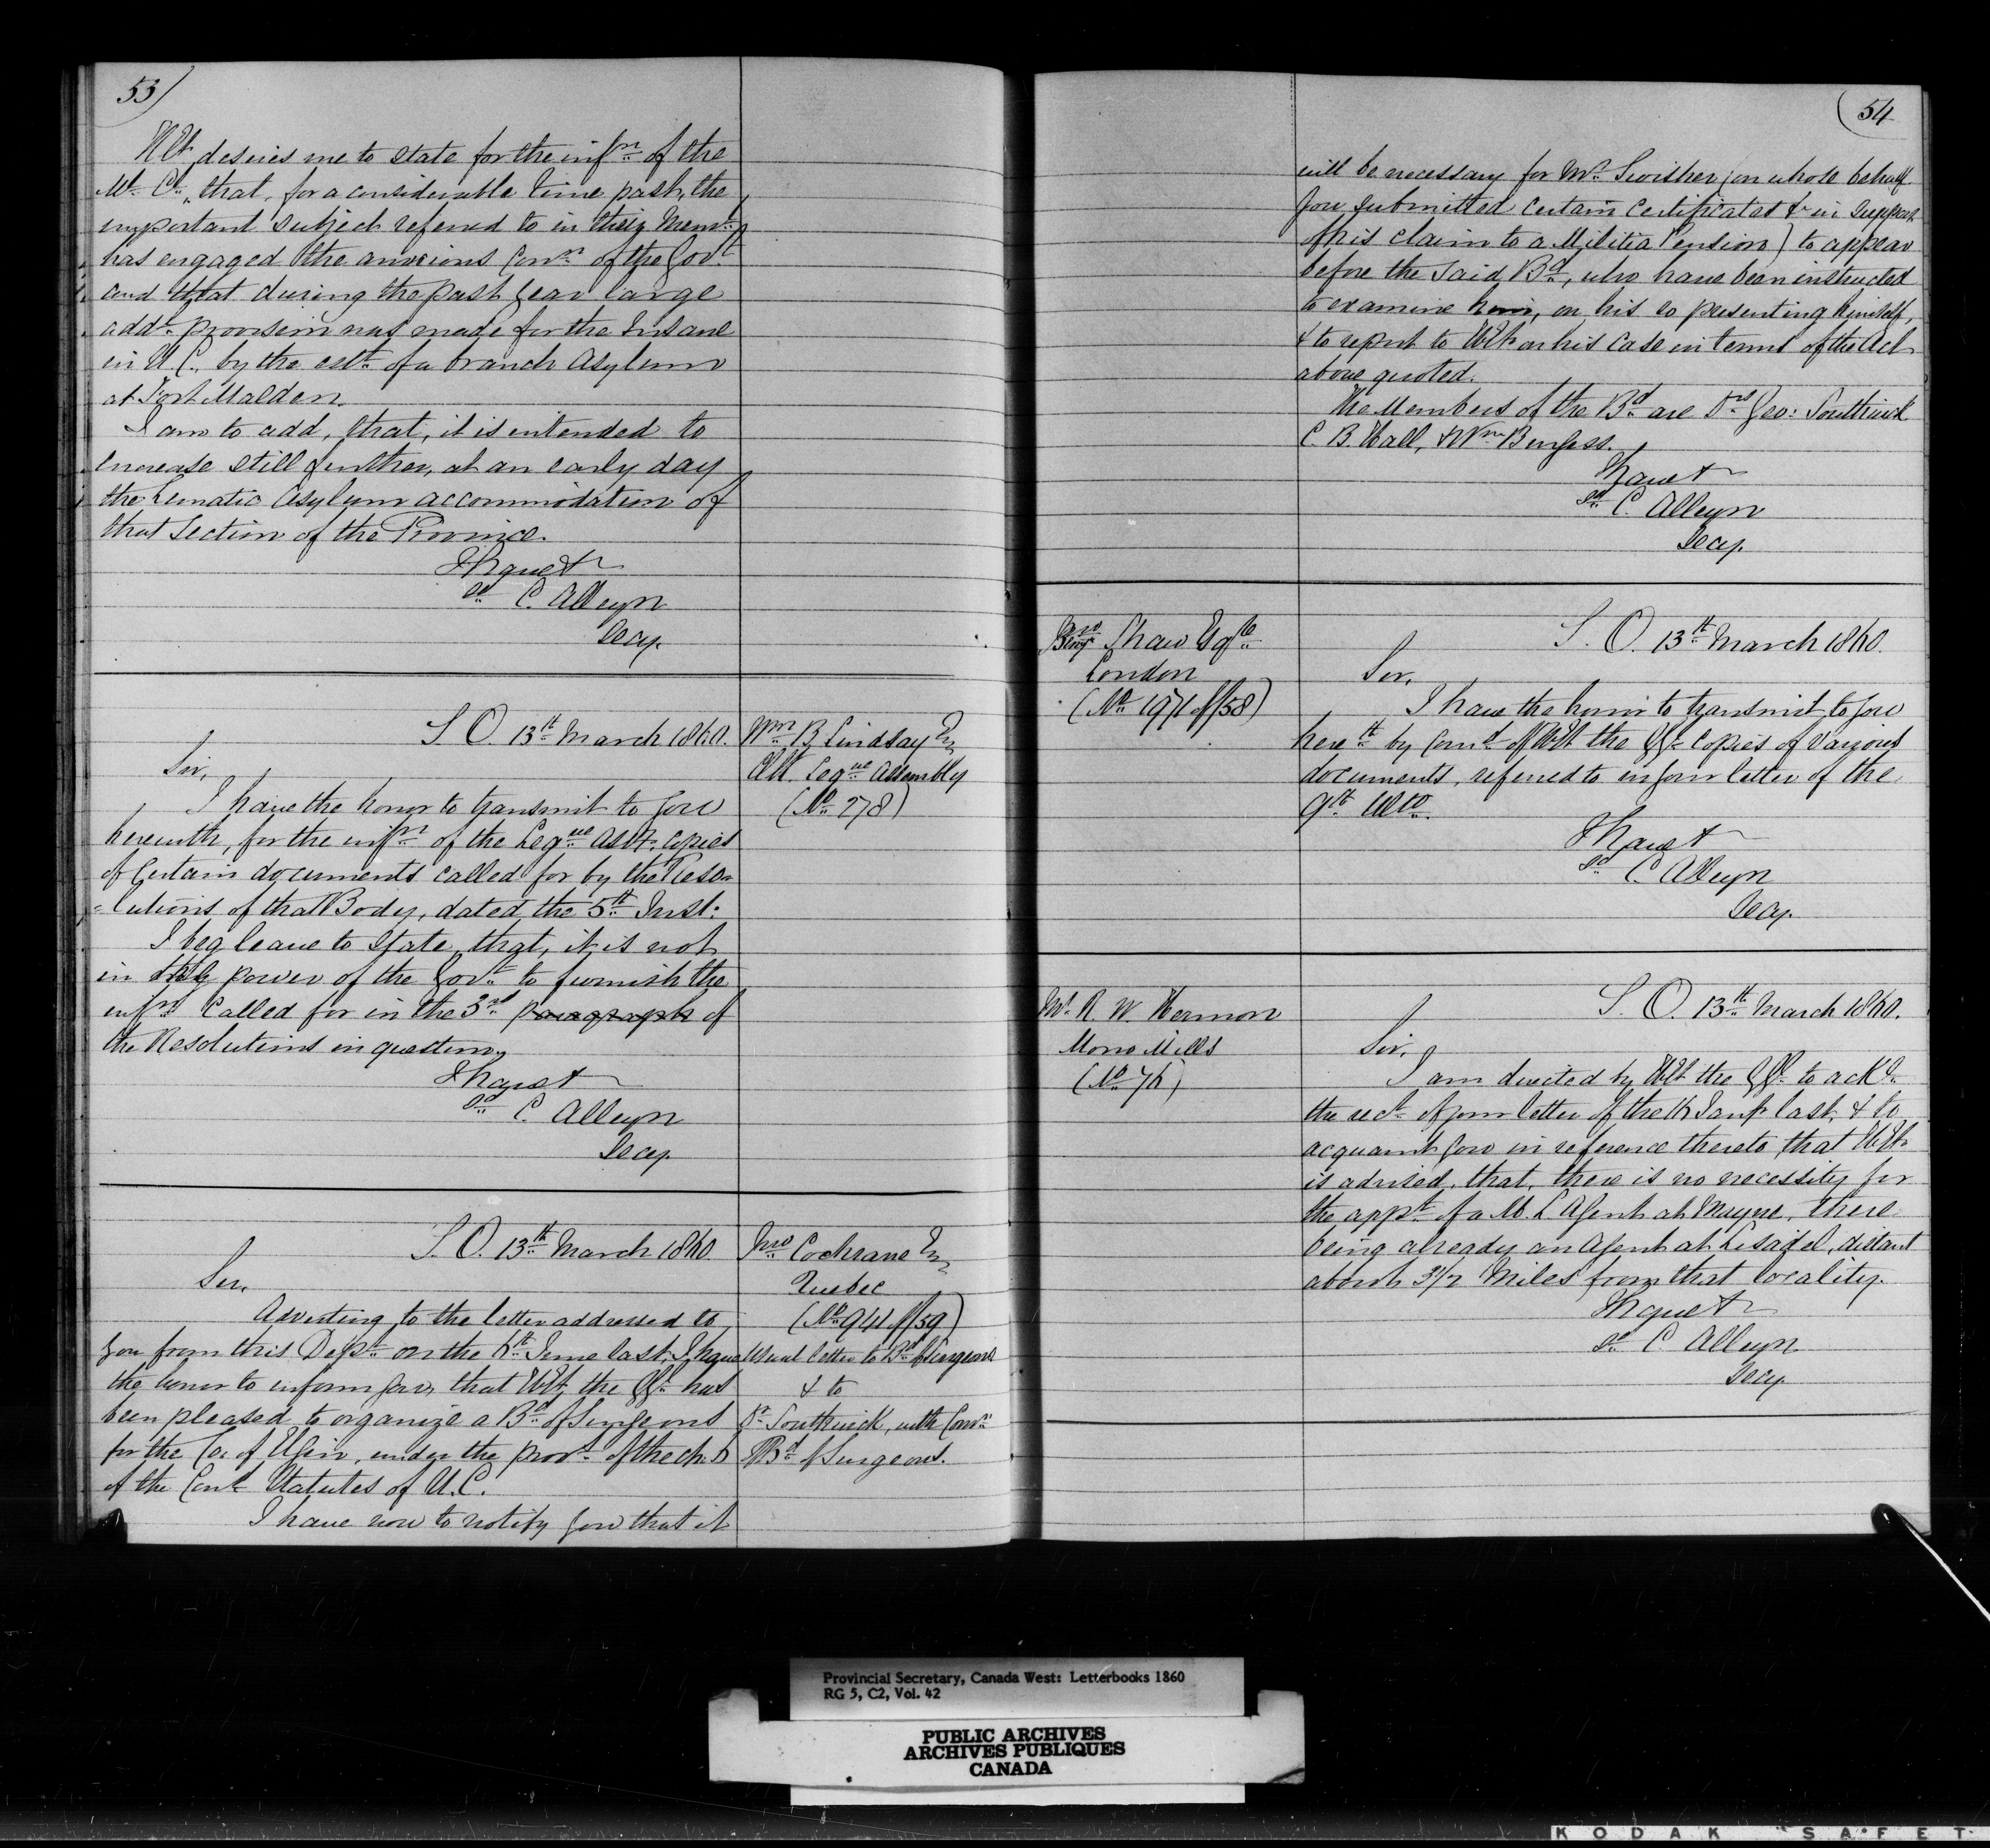 53)
H Ex. desires me to state for the infn of the
Ml. Cl., that, for a considerable time past, the
important subject referred to in their Meml.
has engaged the anxious Conn. of the Govt
and that during the past year large
addl. provision was made for the Insane
in U. C. by the estt. of a branch Asylum
at Fort Malden.
I am to add, that, it is intended to
increase still further, at an early day
the Lunatic Asylum accommodation of
that section of the Province.
I have &
sd C. Alleyn
Secy.
S. O. 13th March 1860.
Wm B Lindsay Esq
Clk. Legve Assembly
(No 278)
Sir,
I have the honor to transmit to you
herewith, for the infn of the Legve Assy. copies
of certain documents called for by the Reso-
=lutions of that Body, dated the 5th Inst:
I beg leave to state, that, it is not
in the power of the Govt. to furnish the
infn called for in the 3rd paragraph of
the Resolutions in question.
I have &
sd C. Alleyn
Secy.
S. O. 13th March 1860
Jno Cochrane Esq
Quebec
(No 941 of/59)
Usual letter to Bd of Surgeons
& to
Dr Southwick, with Comn
Bd of Surgeons.
Sir,
Adverting to the letter addressed to
you from this Dept. on the 6th June last, I have
the honor to inform you, that H Ex. the GG. has
been pleased to organize a Bd of Surgeons
for the Co. of Elgin, under the provs. of the ch: 
of the Cond Statutes of U. C.
I have now to notify you that it
(54
will be necessary for Mr. Swisher (on whose behalf
you submitted certain certificates & in support
of his claim to a Militia Pension) to appear
before the said Bd, who have been instructed
to examine him, on his so presenting himself,
& to report to H Ex. on his case in terms of the Act
above quoted.
The Members of the Bd are Drs Geo: Southwick
C. B. Hall, & Wm Burgess.
I have &
sd C. Alleyn
Secy.
Shaw Esqre
London
(No 1971 of/58)
S. O. 13th March 1860.
Sir,
I have the honor to transmit to you
herewth by Comd of H Ex. the GG. copies of various
documents, referred to in your letter of the
9th Ulto.
I have &
sd C. Alleyn
Secy.
Mr. R. W. Hermon
Mono Mills
(No 76)
S. O. 13th March 1860.
Sir,
I am directed by H Ex. the GG. to ackl.
the rect. of your letter of the 16 Jany last, & to
acquaint you in reference thereto, that H Ex.
is advised, that, there is no necessity for
the appt. of a M. L. Agent at Mayne, there
being already an Agent at Lisadel, distant
about 3 1/2 Miles from that locality.
I have &
sd C. Alleyn
Secy.
Provincial Secretary, Canada West: Letterbooks 1860
RG 5, C2, Vol. 42
PUBLIC ARCHIVES
ARCHIVES PUBLIQUES
CANADA
KODAK SAFET